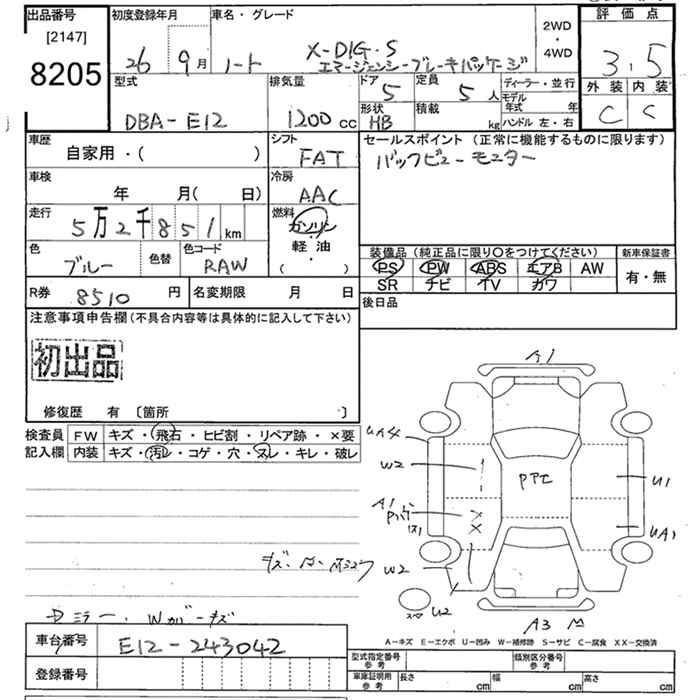 出品番号 初度登録年月 車名・グレード 2WD・4WD 評価点
[2147]
8205 26 9月 ノート X-DIG・S
エマージェンシーブレーキパッケージ
3.5
型式 排気量 ドア 定員 ディーラー・並行 外装 内装
DBA-E12 1200cc 5 5人 モデル年式 年 C C
形状 積載 ハンドル 左・右
HB kg
車歴 シフト セールスポイント (正常に機能するものに限ります)
自家用・( ) FAT バックビューモニター
車検 冷房
年 月( 日) AAC
走行 燃料
5万2千851km ガソリン
軽油
( )
色 色替 色コード 装備品(純正品に限り○をつけてください) 新車保証書
ブルー RAW PS PW ABS エアB AW 有・無
SR ナビ TV カワ
R券 8510円 名変期限 月 日 後日品
注意事項申告欄(不具合内容等は具体的に記入して下さい)
初出品
修復歴 有 〔箇所 〕
検査員 FW キズ・飛石・ヒビ割・リペア跡・×要
記入欄 内装 キズ・汚レ・コゲ・穴・スレ・キレ・破レ
A1
UA4
W2
U1
A1
X
X
UA1
W2
U2
A3
A-キズ E-エクボ U-凹み W-補修跡 S-サビ C-腐食 XX-交換済
車台番号 E12-243042
型式指定番号 参考 類別区分番号 参考
登録番号 車庫証明用 参考 長さ cm 幅 cm 高さ cm